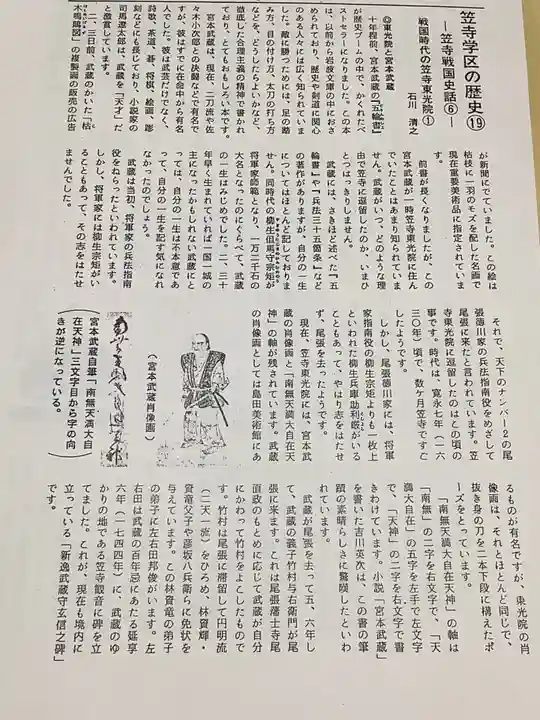 笠寺学区の歴史⑲
―笠寺戦国史話⑥―
戦国時代の笠寺東光院①
石川 清之
◎東光院と宮本武蔵
十年程前、宮本武蔵の『五輪書』
が歴史ブームの中で、かくれたべ
ストセラーになりました。この本
は、以前から岩波文庫の中におさ
められており、歴史や剣道に関心
のある人々には広く知られていま
した。敵に勝つためには、足の踏
み方、目の付け方、太刀の打ち方
などを、どうしたらよいかなど、
徹底した合理主義の精神で書かれ
ており、とてもおもしろい本です。
宮本武蔵は、現在、二刀流や佐
々木小次郎との決闘などで有名で
すが、彼はすでに在命中から有名
人でした。彼は武芸だけでなく、
詩歌、茶道、碁、将棋、絵画、彫
刻などにも長じており、小説家の
司馬遼太郎は、武蔵を「天才」だ
と激賞しています。
二、三日前、武蔵のかいた「枯
木鳴鵙図」の複製画の販売の広告
が新聞にでていました。この絵は
枯枝に一羽のモズを配した名画で
現在重要美術品に指定されていま
す。
前書が長くなりましたが、この
宮本武蔵が一時笠寺東光院に住ん
でいたことはあまり知られていま
せん。武蔵がいつ、どのような理
由で笠寺に逗留したのか、いまひ
とつはっきりしません。
武蔵には、さきほど述べた『五
輪書』や『兵法三十五箇条』など
の著作がありますが、自分の一生
についてはほとんど記しておりま
せん。同時代の柳生但馬守宗矩が
将軍家師範となり、一万二千石の
大名となったのにくらべて、武蔵
の一生はみじめでした。二、三十
年早く生まれていれば一国一城の
主になったかもしれない武蔵にと
っては、自分の一生は不本意であ
って、自分の一生を記す気になれ
なかったのでしょう。
武蔵は当初、将軍家の兵法指南
役をねらったといわれています。
しかし、将軍家には柳生宗矩がい
ることもあって、その志をはたせ
ませんでした。
それで、天下のナンバー2の尾
張徳川家の兵法指南役をめざして
尾張に来たと言われています。笠
寺東光院に逗留したのはこの頃の
事です。時代は、寛永七年（一六
三〇年）頃で、数ヶ月笠寺ですご
したようです。
しかし、尾張徳川家には、将軍
家指南役の柳生宗矩よりも一枚上
といわれた柳生兵庫助利厳がいる
こともあって、やはり志をはたせ
ず、尾張を去ったようです。
現在、笠寺東光院には、宮本武
蔵の肖像画と「南無天満大自在天
神」の軸が残されています。武蔵
の肖像画としては島田美術館にあ
（宮本武蔵肖像画）
宮本武蔵自筆「南無天満大自
在天神」三文字目から字の向
きが逆になっている。
るものが有名ですが、東光院の肖
像画は、それとほとんど同じで、
抜き身の刀を二本下段に構えたポ
ーズをとっています。
「南無天満大自在天神」の軸は
「南無」の二字を右文字で、「天
満大自在」の五字を左手で左文字
で、「天神」の二字を右文字で書
きわけています。小説「宮本武蔵」
を書いた吉川英次は、この書の筆
蹟の素晴らしさに驚嘆したといわ
れています。
武蔵が尾張を去って五、六年し
て、武蔵の義子竹村与右衛門が尾
張に来ます。これは尾張藩士寺尾
直政のもとめに応じて武蔵が自分
にかわって竹村をよこしたもので
す。竹村は尾張に滞留して円明流
（二天一流）をひろめ、林資輝・
資竜父子や彦坂八兵衛らに免状を
与えています。この林資竜の弟子
の弟子に左右田邦俊がいます。左
右田は武蔵の百年忌にあたる延享
六年（一七四四年）に、武蔵のゆ
かりの地である笠寺観音に碑を立
てました。これが、現在も境内に
立っている「新逸武蔵守玄信之碑」